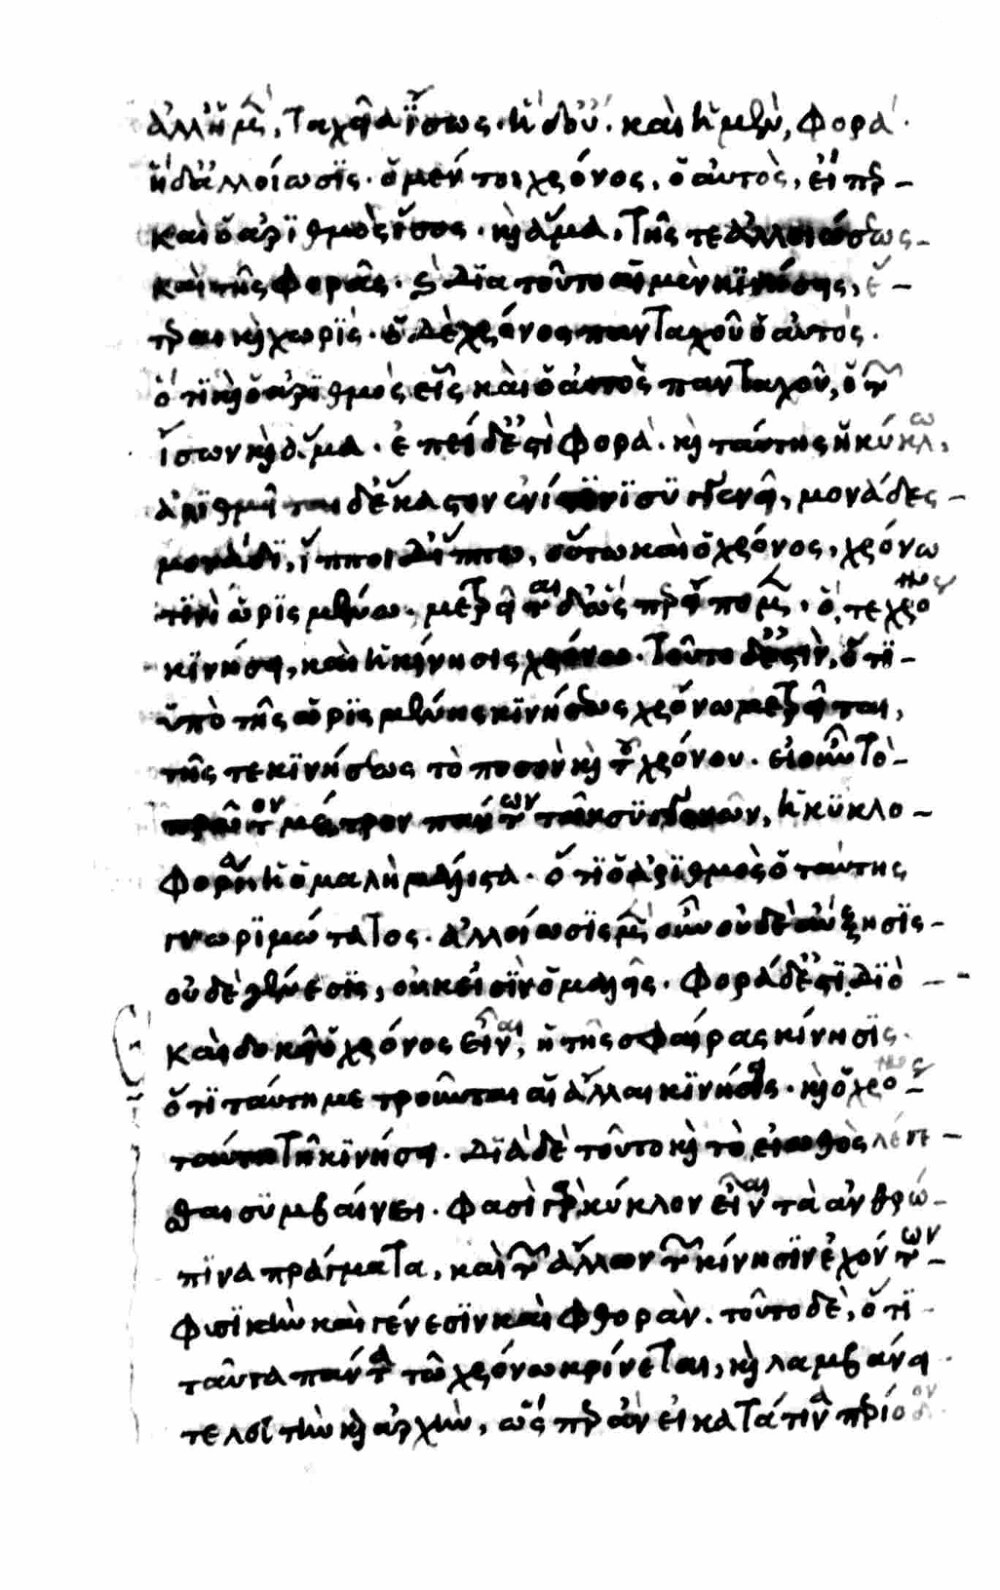 ἀλλ' ἡ μὲν ταχεῖα ἴσως· ἡ δ' οὔ· καὶ ἡ μὲν, φορά·
ἡ δ' ἀλλοίωσις· ὁ μέντοι χρόνος, ὁ αὐτὸς, εἴπερ
καὶ ὁ ἀριθμὸς ἴσος· καὶ ἅμα, τῆς τε ἀλλοιώσεως
καὶ τῆς φορᾶς· καὶ διατοῦτο αἱ μὲν κινήσεις, ἕ-
τεραι καὶ χωρίς· ὁ δὲ χρόνος πανταχοῦ ὁ αὐτός·
ὅτι καὶ ὁ ἀριθμὸς εἷς καὶ ὁ αὐτὸς πανταχοῦ, ὁ τῶν
ἴσων καὶ ἅμα· ἐπεὶ δ' ἐστὶ φορὰ· καὶ ταύτης ἡ κύκλω,
ἀριθμεῖται δ' ἕκαστον ἑνί τινι συγγενεῖ, μονάδες
μονάδι, ἵπποι δ' ἵππω, οὕτω καὶ ὁ χρόνος, χρόνω
τινὶ ὡρισμένω· μετρεῖται δ' ὥσπερ εἴπομεν· ὅ, τε χρόνος
κινήσει, καὶ ἡ κίνησις χρόνω· τοῦτο δ' ἐστὶν, ὅτι
ὑπὸ τῆς ὡρισμένης κινήσεως χρόνω μετρεῖται,
τῆς τε κινήσεως τὸ ποσὸν καὶ τοῦ χρόνου· εἰ οὖν τὸ
πρῶτον μέτρον πάντων τῶν συγγενῶν, ἡ κυκλο-
φορία ἡ ὁμαλὴ μάλιστα· ὅτι ὁ ἀριθμὸς ὁ ταύτης
γνωριμώτατος· ἀλλοίωσις μὲν οὖν οὐδὲ αὔξησις
οὐδὲ γένεσις, οὐκ εἰσὶν ὁμαλεῖς· φορὰ δ' ἐστί· διὸ
καὶ δοκεῖ ὁ χρόνος εἶναι, ἡ τῆς σφαίρας κίνησις·
ὅτι ταύτη μετροῦνται αἱ ἄλλαι κινήσεις· καὶ ὁ χρόνος
ταύτη τῆ κινήσει· διὰ δὲ τοῦτο καὶ τὸ εἰωθὸς λέγε-
σθαι συμβαίνει· φασὶ γὰρ κύκλον εἶναι τὰ ἀνθρώ-
πινα πράγματα, καὶ τῶν ἄλλων τῶν κίνησιν ἐχόντων
φυσικὴν καὶ γένεσιν καὶ φθοράν· τοῦτο δὲ, ὅτι
ταῦτα πάντα τῶ χρόνω κρίνεται, καὶ λαμβάνει
τελευτὴν καὶ ἀρχὴν, ὥσπερ ἂν εἰ κατά τινα περίοδον·